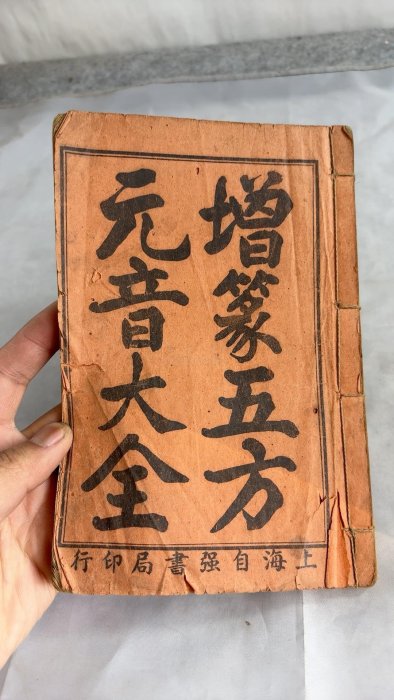 增篆五方
元音大全
上海自强書局印行